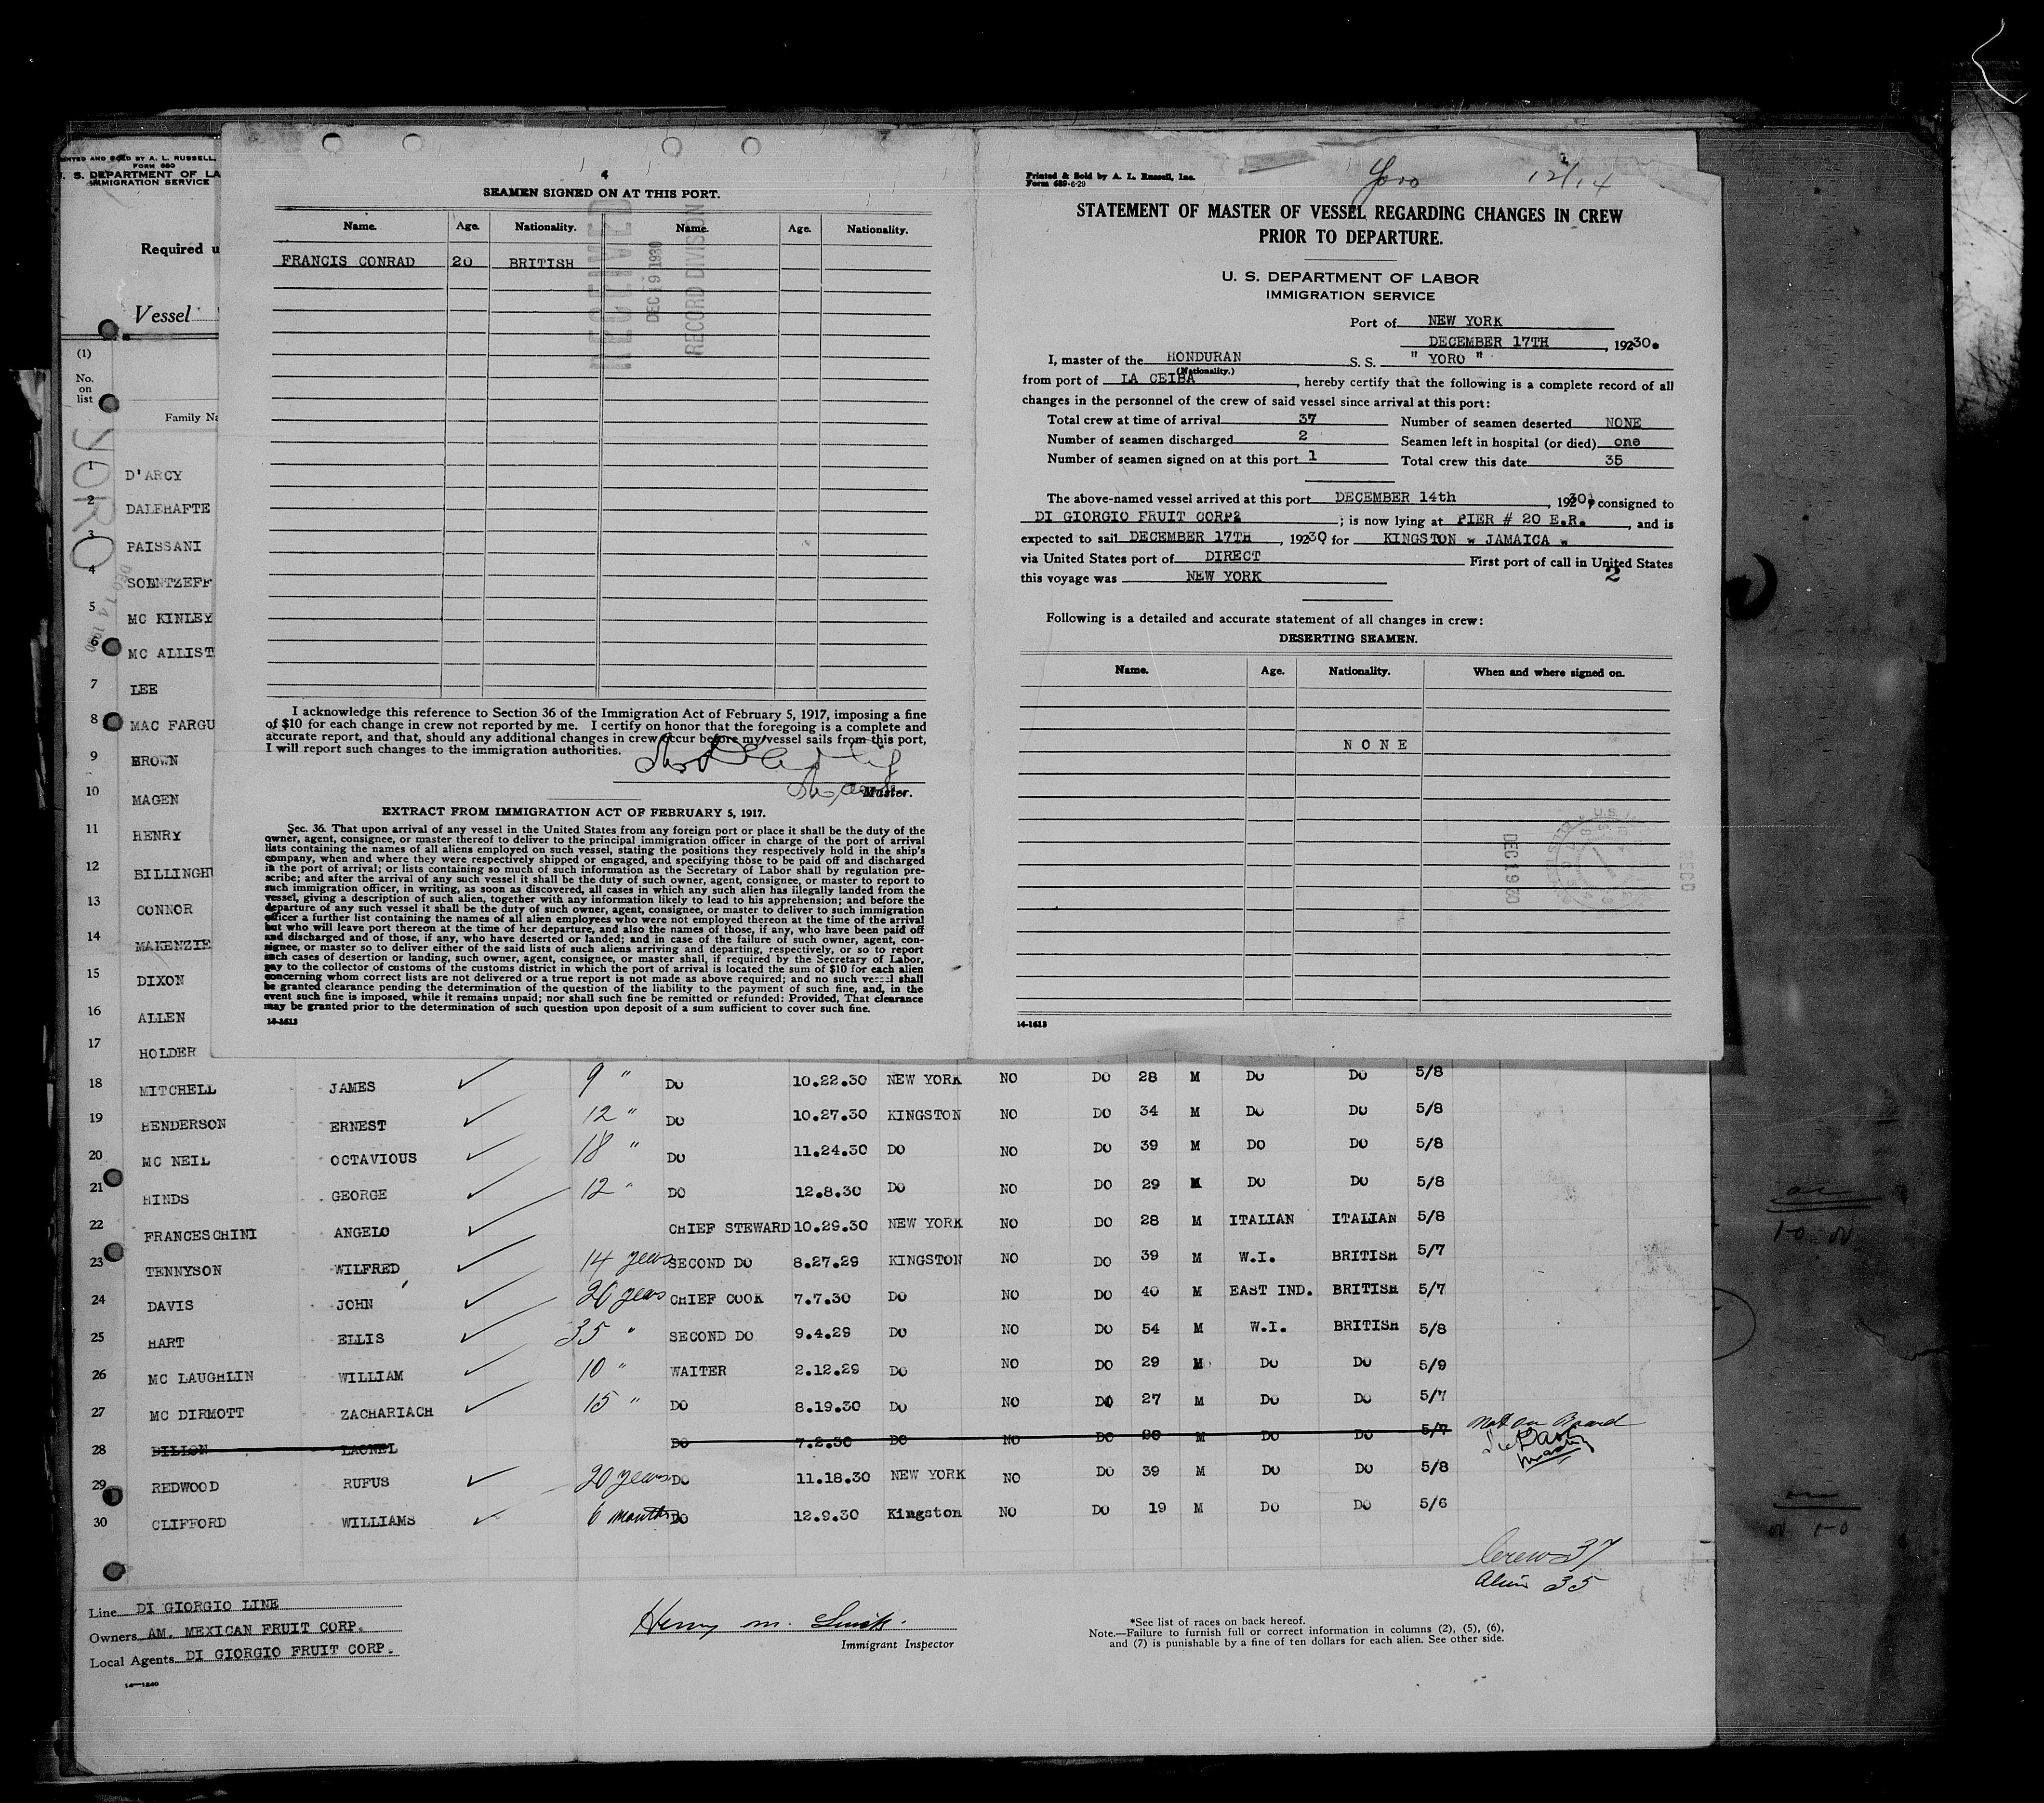 PRINTED AND SOLD BY A. L. RUSSELL,
FORM 680
U. S. DEPARTMENT OF LA
IMMIGRATION SERVICE
Required u
Vessel
(1)
No. on list
Family Na
YORO
DEC 14 1930
1 D'ARCY
2 DALEHAFTE
3 PAISSANI
4 SOENTZEFF
5 MC KINLEY
6 MC ALLIST
7 LEE
8 MAC FARGU
9 BROWN
10 MAGEN
11 HENRY
12 BILLINGH
13 CONNOR
14 MAKENZIE
15 DIXON
16 ALLEN
17 HOLDER
4
SEAMEN SIGNED ON AT THIS PORT.
Name. Age. Nationality. Name. Age. Nationality.
FRANCIS CONRAD 20 BRITISH
DEC 19 1930
RECORD DIVISION
I acknowledge this reference to Section 36 of the Immigration Act of February 5, 1917, imposing a fine
of $10 for each change in crew not reported by me. I certify on honor that the foregoing is a complete and
accurate report, and that, should any additional changes in crew occur before my vessel sails from this port,
I will report such changes to the immigration authorities.
Master.
EXTRACT FROM IMMIGRATION ACT OF FEBRUARY 5, 1917.
Sec. 36. That upon arrival of any vessel in the United States from any foreign port or place it shall be the duty of the
owner, agent, consignee, or master thereof to deliver to the principal immigration officer in charge of the port of arrival
lists containing the names of all aliens employed on such vessel, stating the positions they respectively hold in the ship's
company, when and where they were respectively shipped or engaged, and specifying those to be paid off and discharged
in the port of arrival; or lists containing so much of such information as the Secretary of Labor shall by regulation pre-
scribe; and after the arrival of any such vessel it shall be the duty of such owner, agent, consignee, or master to report to
such immigration officer, in writing, as soon as discovered, all cases in which any such alien has illegally landed from the
vessel, giving a description of such alien, together with any information likely to lead to his apprehension; and before the
departure of any such vessel it shall be the duty of such owner, agent, consignee, or master to deliver to such immigration
officer a further list containing the names of all alien employees who were not employed thereon at the time of the arrival
but who will leave port thereon at the time of her departure, and also the names of those, if any, who have been paid off
and discharged and of those, if any, who have deserted or landed; and in case of the failure of such owner, agent, con-
signee, or master so to deliver either of the said lists of such aliens arriving and departing, respectively, or so to report
such cases of desertion or landing, such owner, agent, consignee, or master shall, if required by the Secretary of Labor,
pay to the collector of customs of the customs district in which the port of arrival is located the sum of $10 for each alien
concerning whom correct lists are not delivered or a true report is not made as above required; and no such vessel shall
be granted clearance pending the determination of the question of the liability to the payment of such fine, and, in the
event such fine is imposed, while it remains unpaid; nor shall such fine be remitted or refunded: Provided, That clearance
may be granted prior to the determination of such question upon deposit of a sum sufficient to cover such fine.
14-1613
Printed & Sold by A. L. Russell, Inc.
Form 689-6-29
Yoro 12/14
STATEMENT OF MASTER OF VESSEL REGARDING CHANGES IN CREW
PRIOR TO DEPARTURE.
U. S. DEPARTMENT OF LABOR
IMMIGRATION SERVICE
Port of NEW YORK
DECEMBER 17TH, 19230.
I, master of the HONDURAN S. S. " YORO "
(Nationality.)
from port of LA CEIBA, hereby certify that the following is a complete record of all
changes in the personnel of the crew of said vessel since arrival at this port:
Total crew at time of arrival 37 Number of seamen deserted NONE
Number of seamen discharged 2 Seamen left in hospital (or died) one
Number of seamen signed on at this port 1 Total crew this date 35
The above-named vessel arrived at this port DECEMBER 14th, 19230, consigned to
DI GIORGIO FRUIT CORP; is now lying at PIER # 20 E.R., and is
expected to sail DECEMBER 17TH, 19230 for KINGSTON JAMAICA
via United States port of DIRECT First port of call in United States
this voyage was NEW YORK 2
Following is a detailed and accurate statement of all changes in crew:
DESERTING SEAMEN.
Name. Age. Nationality. When and where signed on.
N O N E
14-1613
18 MITCHELL JAMES 9 " DO 10.22.30 NEW YORK NO DO 28 M DO DO 5/8
19 HENDERSON ERNEST 12 " DO 10.27.30 KINGSTON NO DO 34 M DO DO 5/8
20 MC NEIL OCTAVIOUS 18 " DO 11.24.30 DO NO DO 39 M DO DO 5/8
21 HINDS GEORGE 12 " DO 12.8.30 DO NO DO 29 M DO DO 5/8
22 FRANCESCHINI ANGELO CHIEF STEWARD 10.29.30 NEW YORK NO DO 28 M ITALIAN ITALIAN 5/8
23 TENNYSON WILFRED 14 years SECOND DO 8.27.29 KINGSTON NO DO 39 M W.I. BRITISH 5/7
24 DAVIS JOHN 20 years CHIEF COOK 7.7.30 DO NO DO 40 M EAST IND. BRITISH 5/7
25 HART ELLIS 35 " SECOND DO 9.4.29 DO NO DO 54 M W.I. BRITISH 5/8
26 MC LAUGHLIN WILLIAM 10 " WAITER 2.12.29 DO NO DO 29 M DO DO 5/9
27 MC DIRMOTT ZACHARIACH 15 " DO 8.19.30 DO NO DO 27 M DO DO 5/7
28 DILLON LAONEL DO 7.2.30 DO NO DO 28 M DO DO 5/7 not on Board
29 REDWOOD RUFUS 20 years DO 11.18.30 NEW YORK NO DO 39 M DO DO 5/8
30 CLIFFORD WILLIAMS 6 months DO 12.9.30 Kingston NO DO 19 M DO DO 5/6
Crew 37
Alien 35
Line DI GIORGIO LINE
Owners AM. MEXICAN FRUIT CORP.
Local Agents DI GIORGIO FRUIT CORP.
14-1240
Henry M. Smith.
Immigrant Inspector
*See list of races on back hereof.
Note.—Failure to furnish full or correct information in columns (2), (5), (6),
and (7) is punishable by a fine of ten dollars for each alien. See other side.